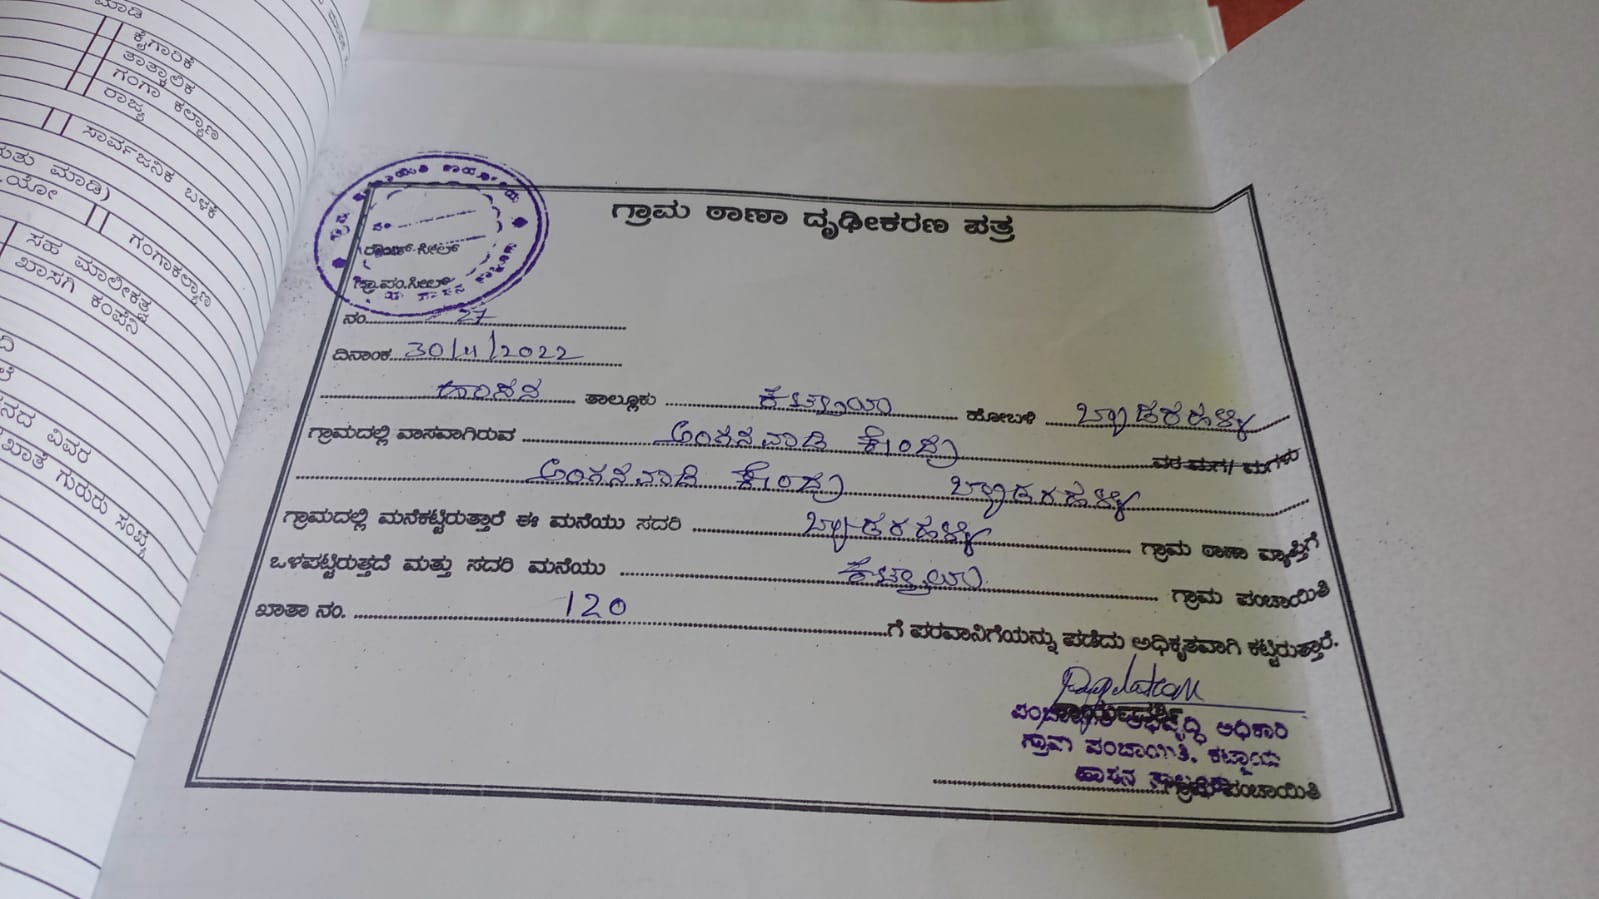 ಮಾಡಿ
ಕೈಗಾರಿಕೆ
ತಾತ್ಕಾಲಿಕ
ಗಂಗಾ ಕಲ್ಯಾಣ
ರಾಜ್ಯ
ಸಾರ್ವಜನಿಕ ಬಳಕೆ
ಮಾಡಿ)
ಗಂಗಾಕಲ್ಯಾಣ
ಸಹ ಮಾಲೀಕತ್ವ
ಖಾಸಗಿ ಕಂಪೆನಿ
ವಿವರ
ಖಾತೆ ಗುರುರು ಸಂಖ್ಯೆ
ಗ್ರಾಮ ಠಾಣಾ ದೃಢೀಕರಣ ಪತ್ರ
ರೌಂಡ್ ಸೀಲ್
ಗ್ರಾ.ಪಂ.ಸೀಲ್
ನಂ. 27
ದಿನಾಂಕ 30/11/2022
ಹಾಸನ ತಾಲ್ಲೂಕು ಕಟ್ಟಾಯ ಹೋಬಳಿ ಬ್ಯಾಡರಹಳ್ಳಿ
ಗ್ರಾಮದಲ್ಲಿ ವಾಸವಾಗಿರುವ ಅಂಗನವಾಡಿ ಕೇಂದ್ರ ರವರ ಮಗ/ ಮಗಳು
ಅಂಗನವಾಡಿ ಕೇಂದ್ರ ಬ್ಯಾಡರಹಳ್ಳಿ
ಗ್ರಾಮದಲ್ಲಿ ಮನೆಕಟ್ಟಿರುತ್ತಾರೆ ಈ ಮನೆಯು ಸದರಿ ಬ್ಯಾಡರಹಳ್ಳಿ ಗ್ರಾಮ ಠಾಣಾ ವ್ಯಾಪ್ತಿಗೆ
ಒಳಪಟ್ಟಿರುತ್ತದೆ ಮತ್ತು ಸದರಿ ಮನೆಯು ಕಟ್ಟಾಯ ಗ್ರಾಮ ಪಂಚಾಯಿತಿ
ಖಾತಾ ನಂ. 120 ಗೆ ಪರವಾನಿಗೆಯನ್ನು ಪಡೆದು ಅಧಿಕೃತವಾಗಿ ಕಟ್ಟಿರುತ್ತಾರೆ.
ಪಂಚಾಯಿತಿ ಅಭಿವೃದ್ಧಿ ಅಧಿಕಾರಿ
ಗ್ರಾಮ ಪಂಚಾಯಿತಿ, ಕಟ್ಟಾಯ
ಹಾಸನ ತಾಲ್ಲೂಕು
ಗ್ರಾಮ ಪಂಚಾಯಿತಿ